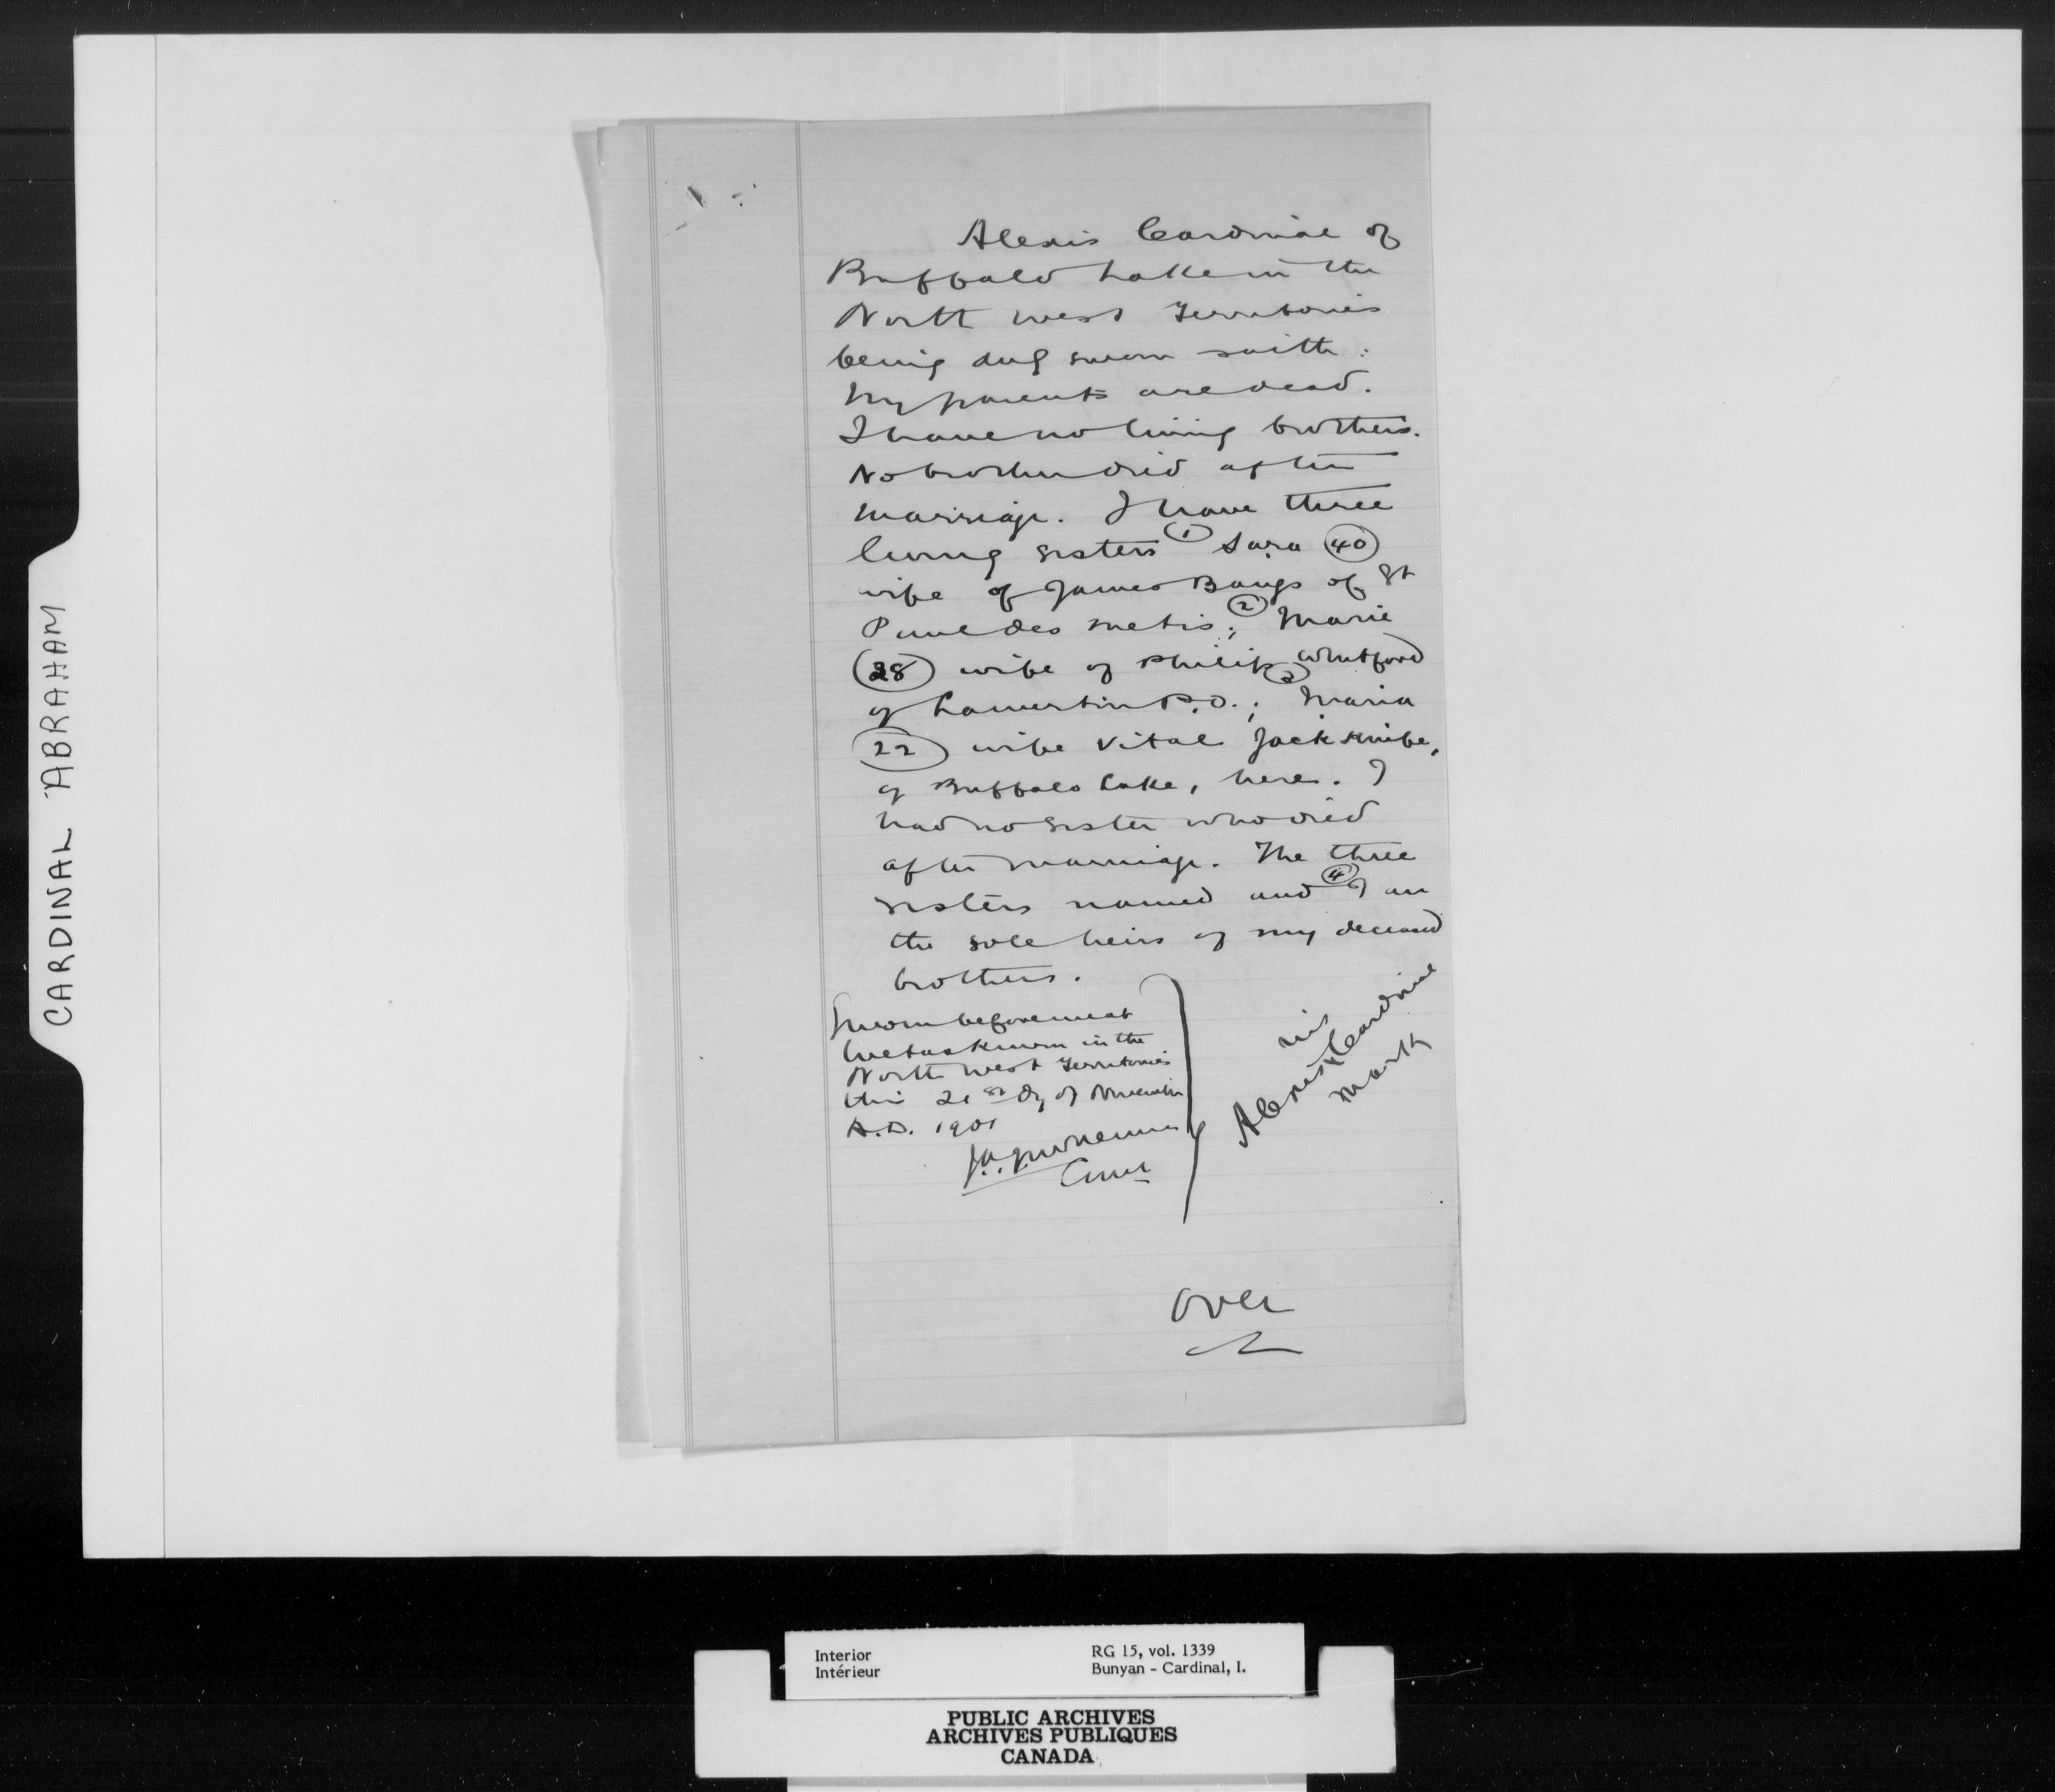 CARDINAL ABRAHAM
Alexis Cardinal of
Buffalo Lake in the
North West Territories
being duly sworn saith:
My parents are dead.
I have no living brothers.
No brother died after
marriage. I have three
living sisters (1) Sara (40)
wife of James Bangs of St
Paul des Metis; (2) Marie
(28) wife of Philip Whitford
of Lamerton P.O.; (3) Maria
(22) wife Vital Jackknife,
of Buffalo Lake, here. I
had no sister who died
after marriage. The three
sisters named and (4) I am
the sole heirs of my deceased
brothers.
Sworn before me at
Wetaskiwin in the
North West Territories
this 21st Dy of November
A.D. 1901
Comr
his
Alexis X Cardinal
mark
Over
Interior
Intérieur
RG 15, vol. 1339
Bunyan - Cardinal, I.
PUBLIC ARCHIVES
ARCHIVES PUBLIQUES
CANADA